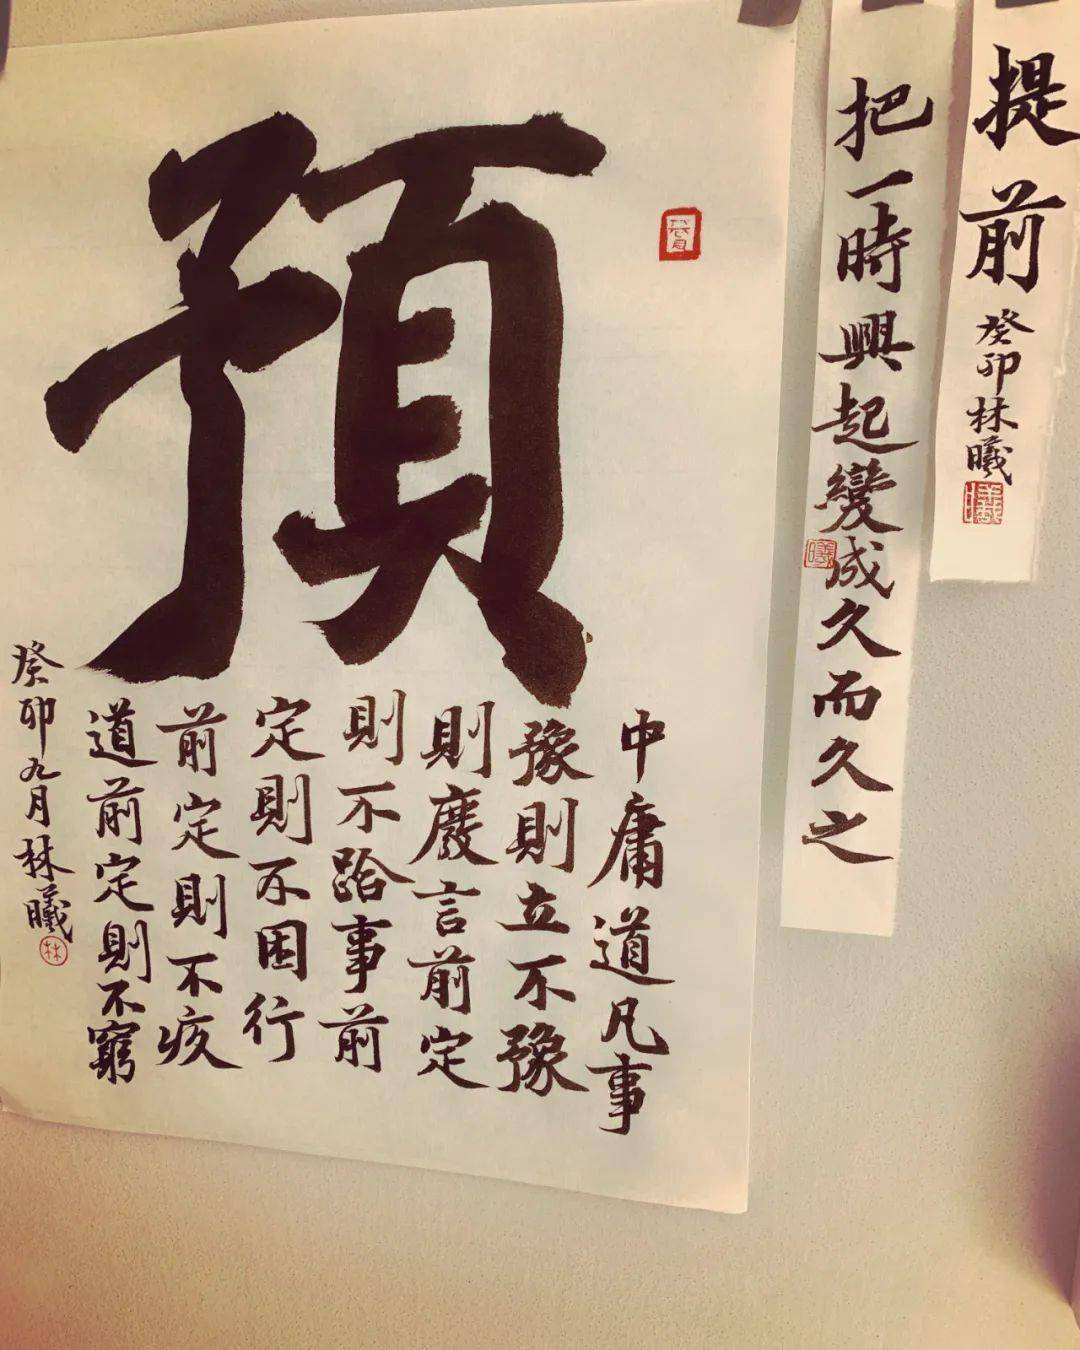 提前
癸卯林曦
曦
把一時興起變成久而久之
曦
預
中庸道凡事
豫則立不豫
則廢言前定
則不跲事前
定則不困行
前定則不疚
道前定則不窮
癸卯九月林曦
林